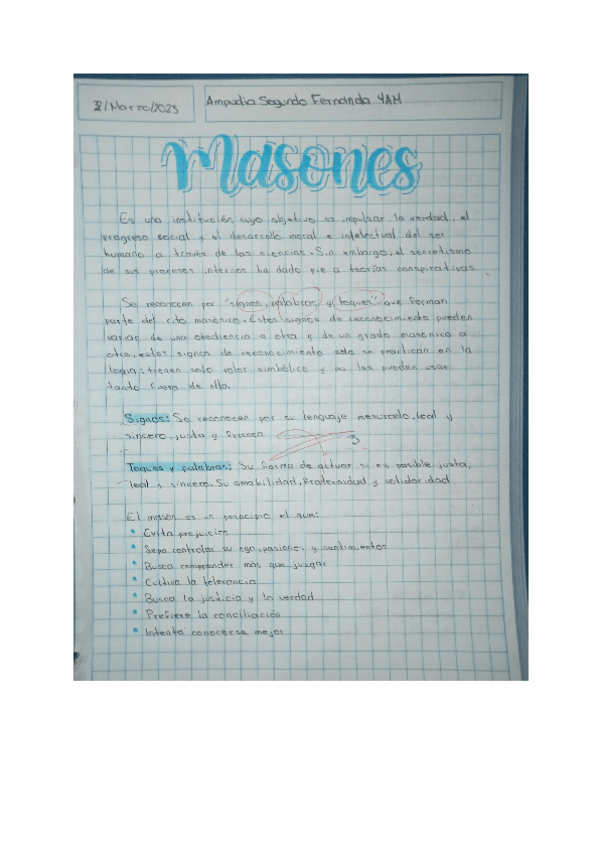 /Marzo/2023
Ampudia Segundo Fernanda 4AM
Masones
Es una institución cuyo objetivo es impulsar la verdad, el
progreso social y el desarrollo moral e intelectual del ser
humano a través de las ciencias. Sin embargo, el secretismo
de sus procesos internos ha dado pie a teorías conspirativas.
Se reconocen por "signos, palabras y toques" que forman
parte del rito masónico. Estos signos de reconocimiento pueden
variar de una obediencia a otra y de un grado masónico a
otro, estos signos de reconocimiento solo se practican en la
logia, tienen solo valor simbólico y no las pueden usar
fuera de ella.
Signos: Se reconocen por su lenguaje mesurado, leal y
sincero, justa y franca
3
Toques y palabras: Su forma de actuar si es posible justa,
leal y sincera. Su amabilidad, fraternidad y solidaridad
El masón es un principio el que:
• Evita prejuicios
• Sepa controlar su ego, pasiones y sentimientos
• Busca comprender más que juzgar
• Cultiva la tolerancia
• Busca la justicia y la verdad
• Prefiere la conciliación
• Intenta conocerse mejor